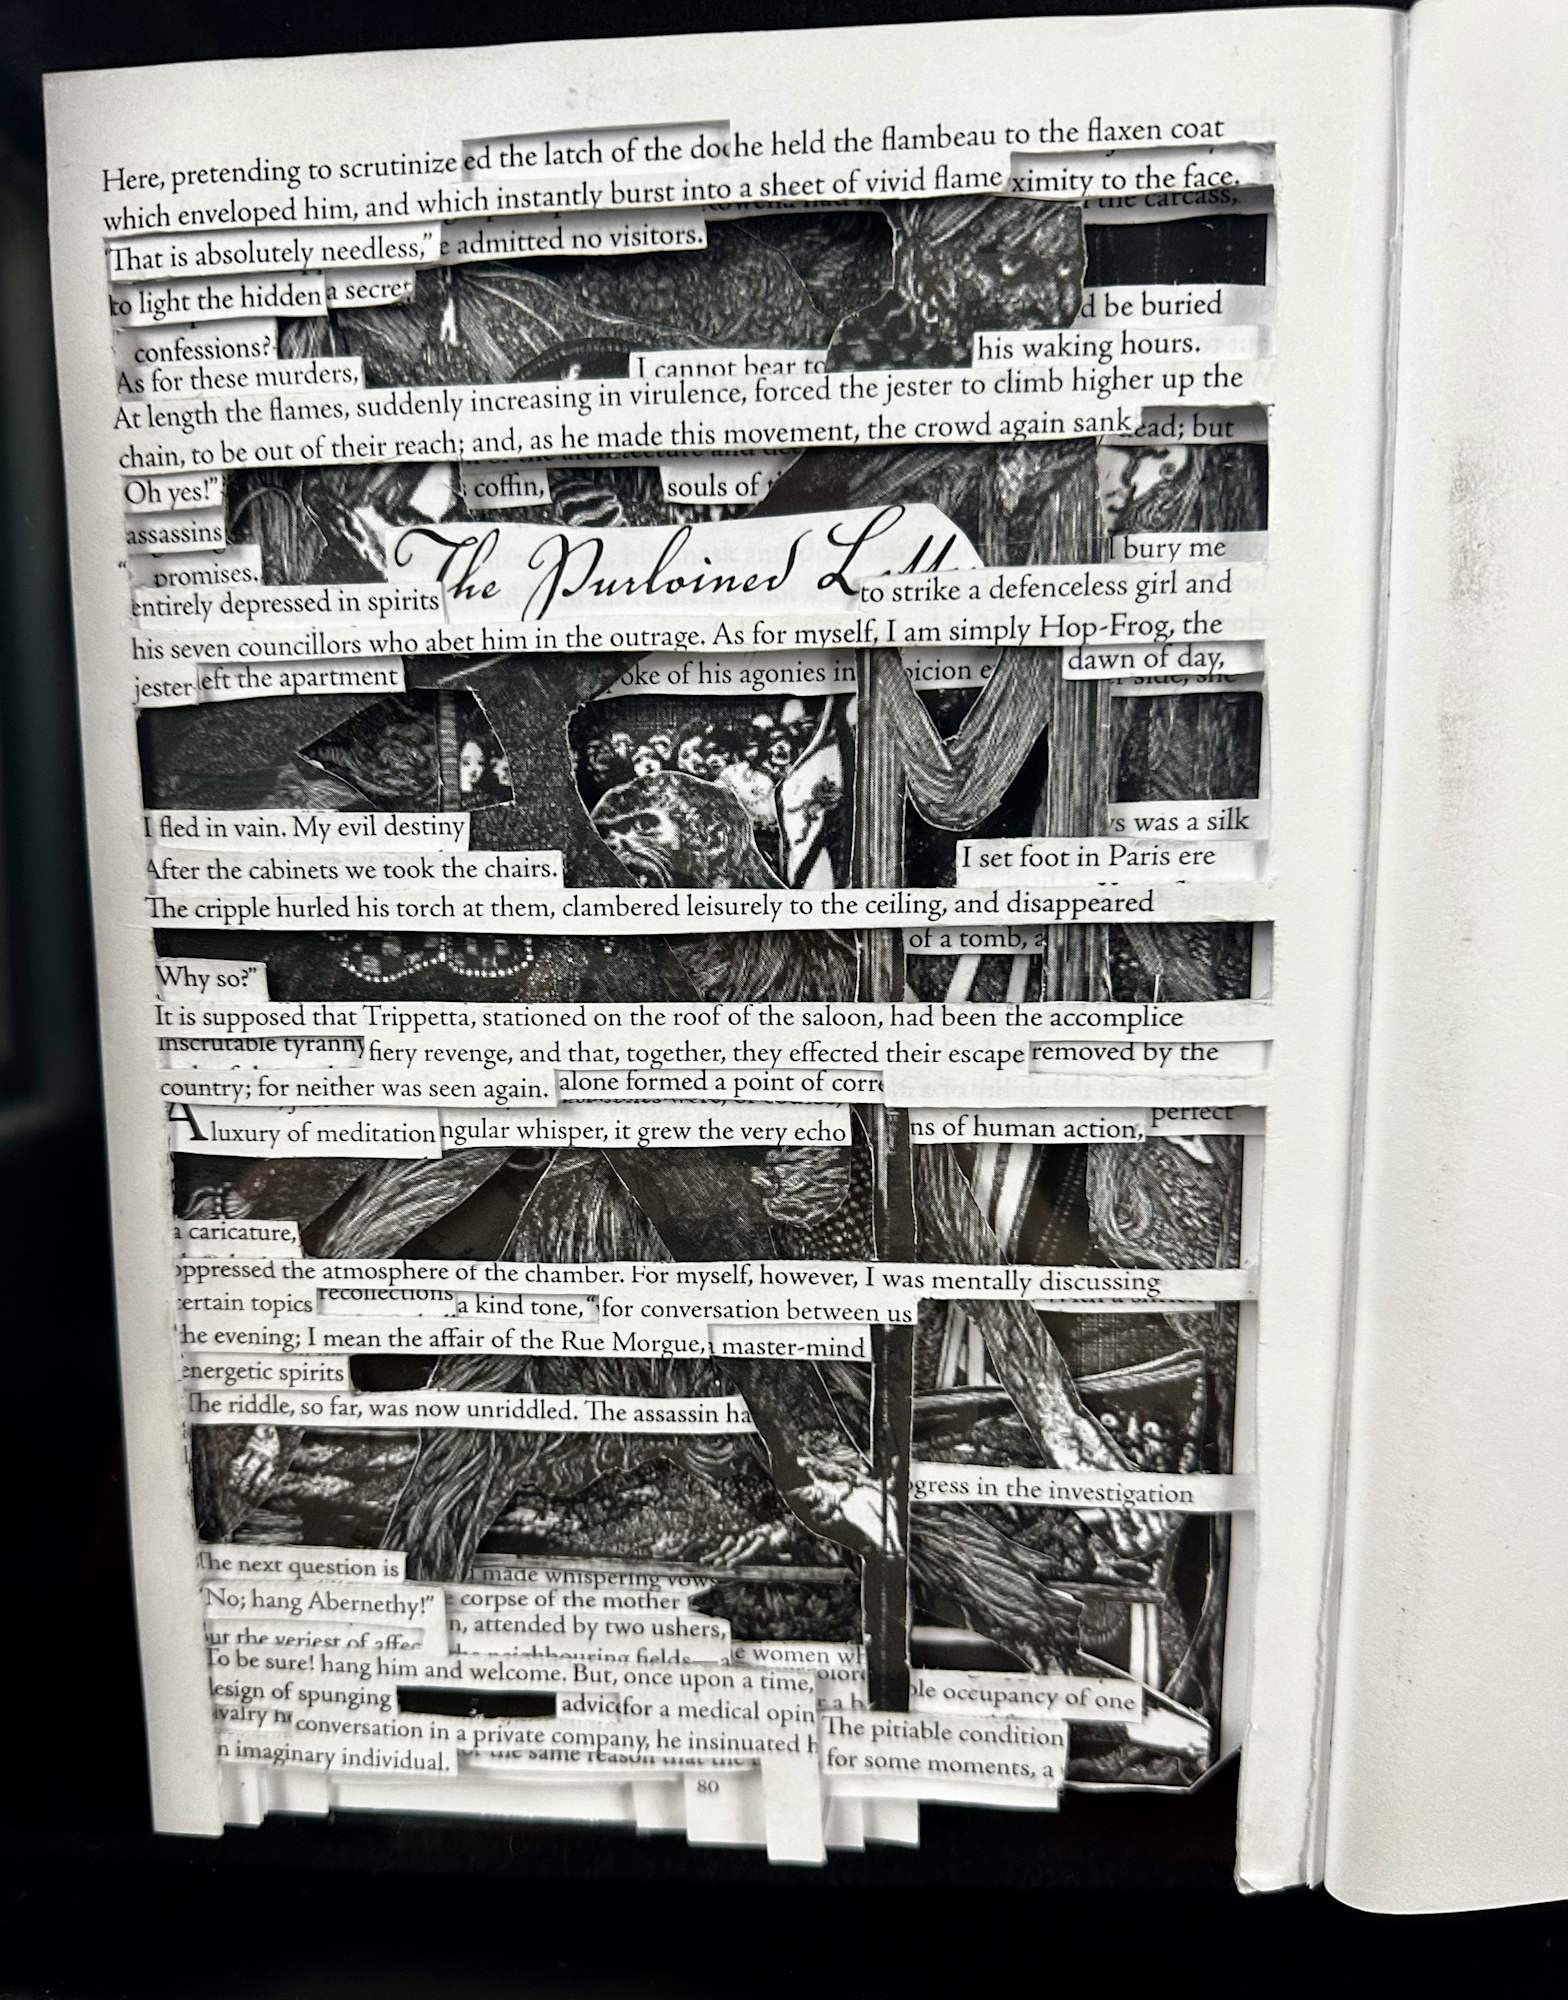 Here, pretending to scrutinize ed the latch of the do he held the flambeau to the flaxen coat
which enveloped him, and which instantly burst into a sheet of vivid flame ximity to the face.
the carcass,
"That is absolutely needless," e admitted no visitors.
to light the hidden a secret d be buried
confessions? his waking hours.
As for these murders, I cannot bear to
At length the flames, suddenly increasing in virulence, forced the jester to climb higher up the
chain, to be out of their reach; and, as he made this movement, the crowd again sank ead; but
Oh yes!" coffin, souls of
assassins
The Purloined L
bury me
" promises.
entirely depressed in spirits to strike a defenceless girl and
his seven councillors who abet him in the outrage. As for myself, I am simply Hop-Frog, the
jester left the apartment oke of his agonies in picion e dawn of day,
side, she
I fled in vain. My evil destiny s was a silk
After the cabinets we took the chairs. I set foot in Paris ere
The cripple hurled his torch at them, clambered leisurely to the ceiling, and disappeared
of a tomb, a
Why so?"
It is supposed that Trippetta, stationed on the roof of the saloon, had been the accomplice
inscrutable tyranny fiery revenge, and that, together, they effected their escape removed by the
country; for neither was seen again. alone formed a point of corre
A luxury of meditation ngular whisper, it grew the very echo ns of human action, perfect
a caricature,
oppressed the atmosphere of the chamber. For myself, however, I was mentally discussing
certain topics recollections a kind tone," for conversation between us
he evening; I mean the affair of the Rue Morgue, master-mind
energetic spirits
The riddle, so far, was now unriddled. The assassin ha
ogress in the investigation
The next question is I made whispering vows
"No; hang Abernethy!" e corpse of the mother
n, attended by two ushers,
ur the veriest of affec the neighbouring fields—a e women wh
To be sure! hang him and welcome. But, once upon a time,
esign of spunging advic for a medical opin ble occupancy of one
valry conversation in a private company, he insinuated h The pitiable condition
n imaginary individual. the same reason that the for some moments, a
80